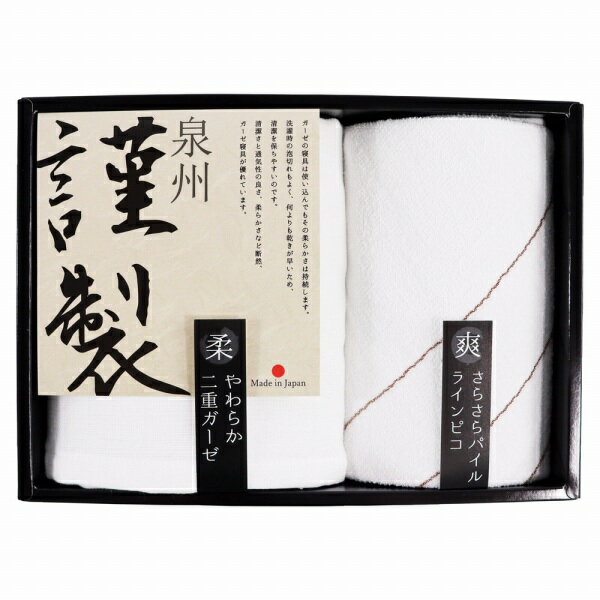 泉州
謹製
ガーゼの寝具は使い込んでもその柔らかさは持続します。
洗濯時の泡切れもよく、何よりも乾きが早いため、
清潔を保ちやすいのです。
清潔さと通気性の良さ、柔らかさなど断然、
ガーゼ寝具が優れています。
Made in Japan
柔
やわらか
二重ガーゼ
爽
さらさらパイル
ラインピコ